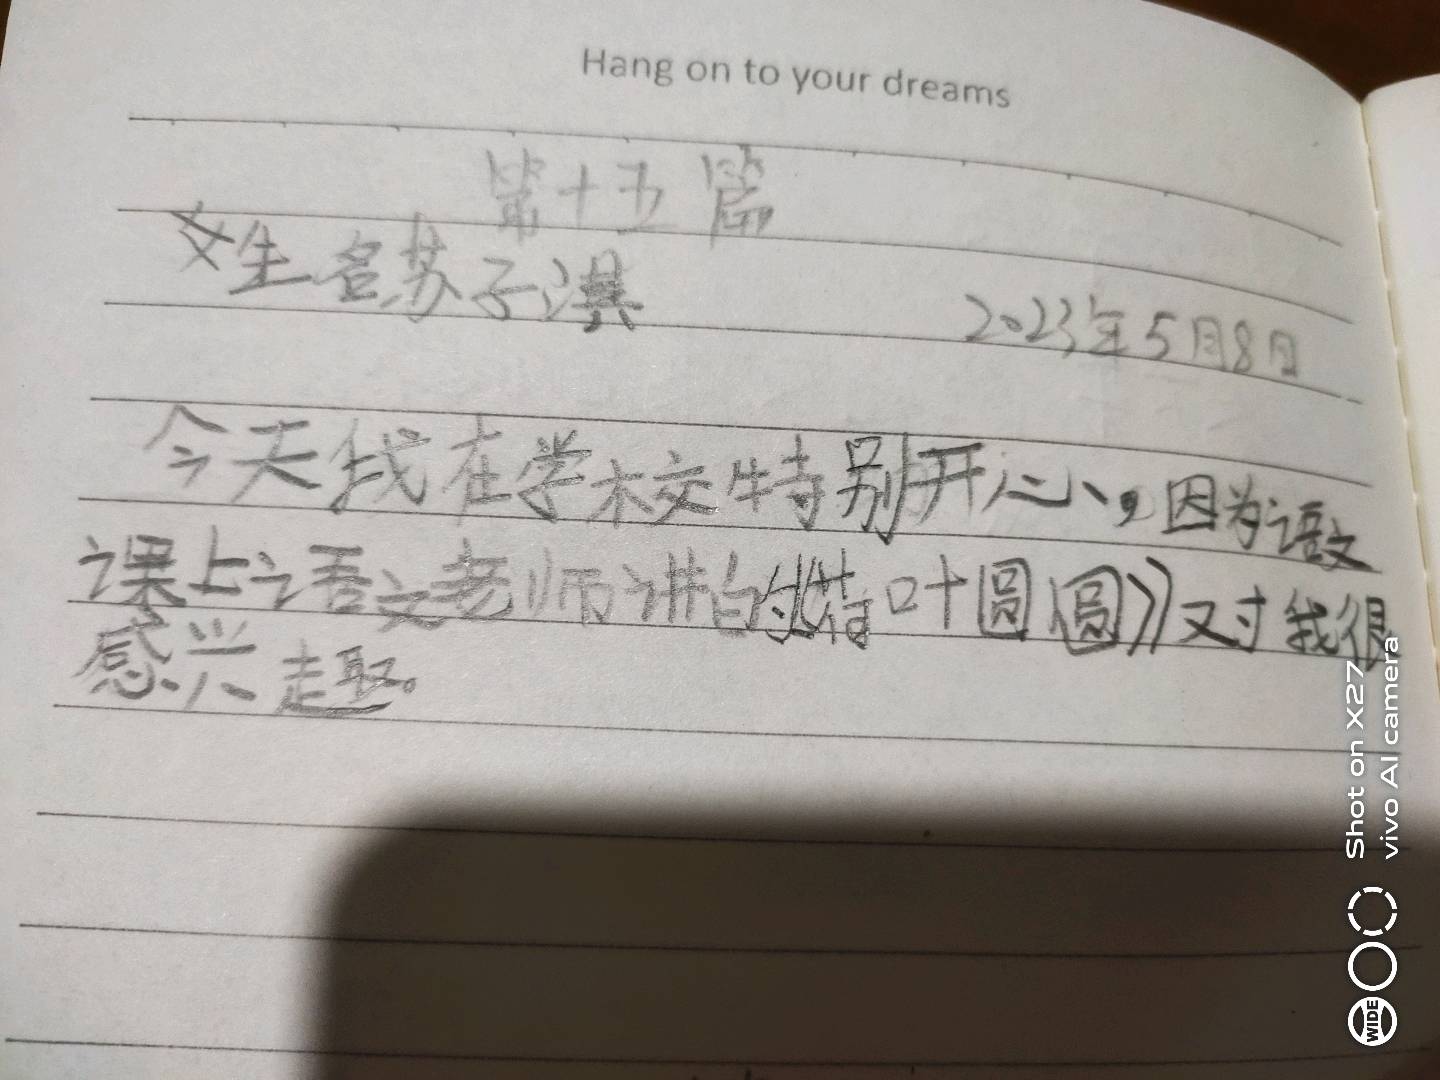 Hang on to your dreams
第十五篇
姓名苏子淇
2023年5月8日
今天我在学校特别开心，因为语文
课上语文老师讲的《荷叶圆圆》对我很
感兴趣。
Shot on X27
vivo AI camera
WIDE